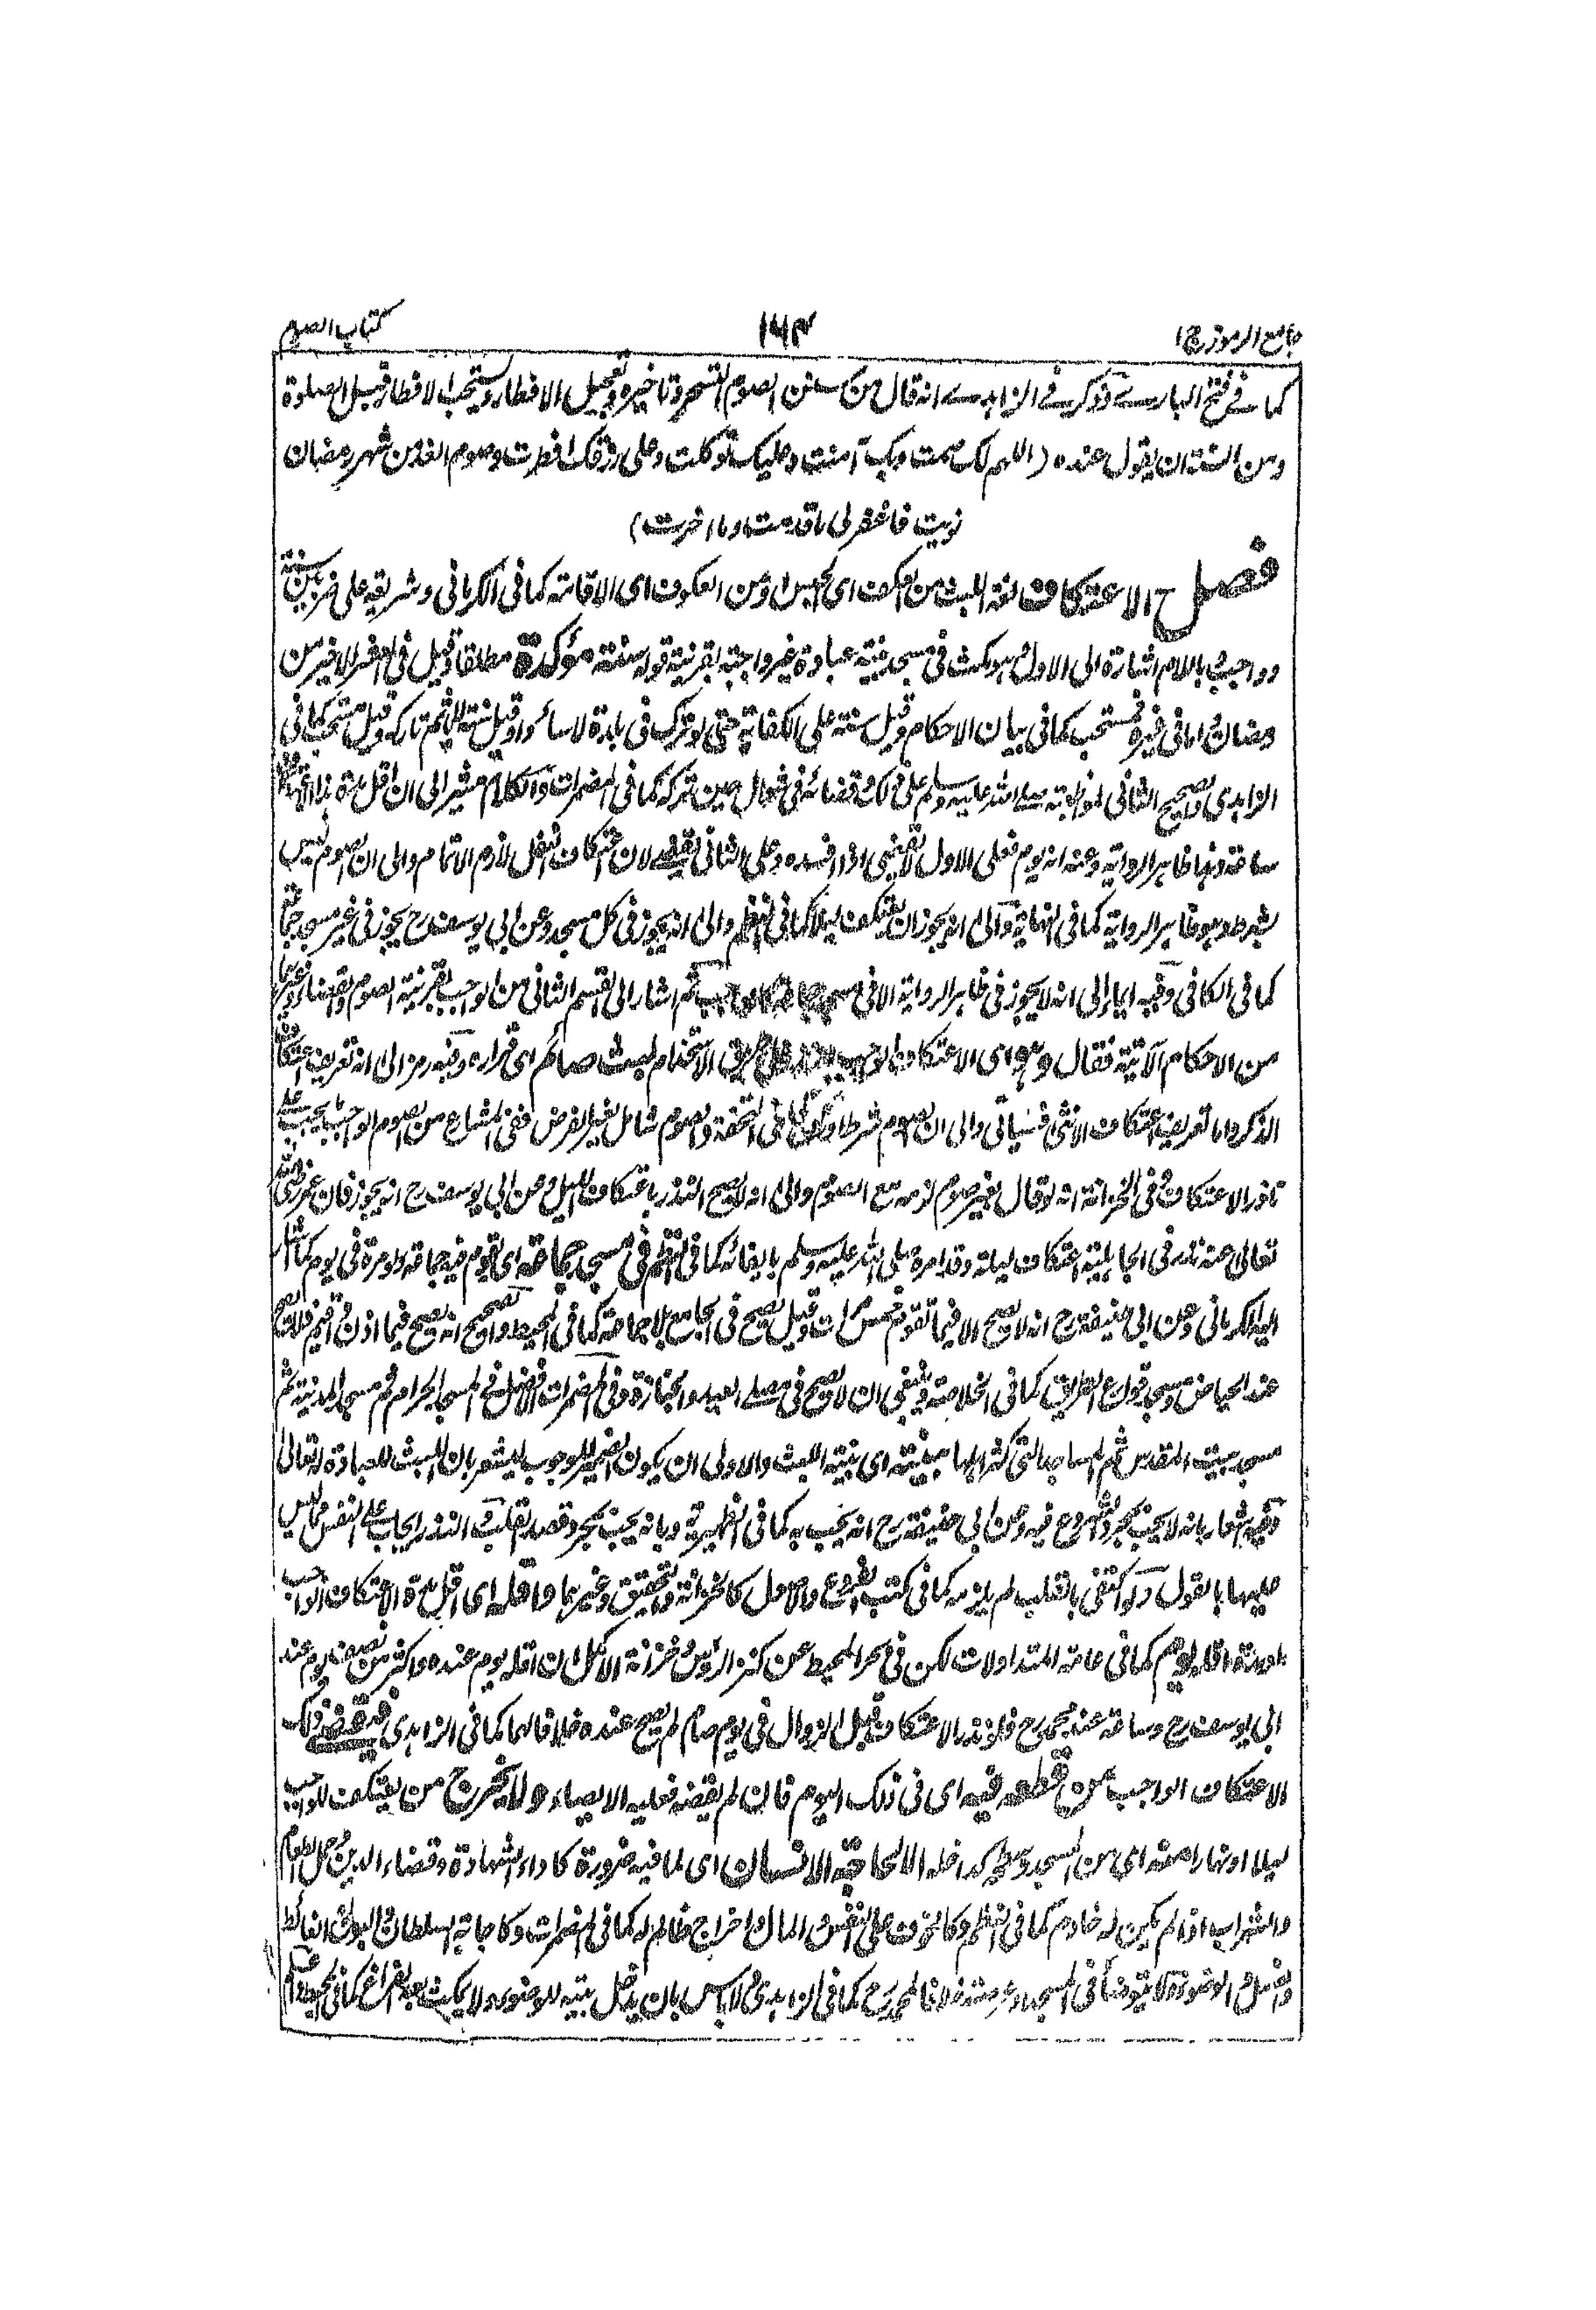 جامع الرموز ج ١
١٦٤
كتاب الصوم
كما فى فتح البارى وذكر فى الزاهدى انه قال من سنن الصوم التسحر وتاخيره وتعجيل الافطار ويستحب الافطار قبل الصلوة
ومن السنة ان يقول عنده (اللهم لك صمت وبك آمنت وعليك توكلت وعلى رزقك افطرت وصوم الغد من شهر رمضان
نويت فاغفر لى ما قدمت وما اخرت)
فصل الاعتكاف لغة اللبث من العكف اى الحبس او من العكوف اى الاقامة كما فى الكرمانى وشريعة على ضربين سنة
وواجب باللام اشارة الى الاول هو مكث فى مسجد بنية عبادة غير واجبة بقرينة قوله سنة مؤكدة مطلقا وقيل فى العشر الاخير من
رمضان اما فى غيره فمستحب كما فى بيان الاحكام وقيل سنة على الكفاية حتى لو ترك فى بلدة لاساؤوا وقيل سنة لا ياثم تاركه وقيل مستحب كما فى
الزاهدى والصحيح الثانى لمواظبته صلى الله عليه وسلم على ذلك وقضائه فى شوال حين تركه كما فى المضمرات والكلام مشير الى ان اقل مدة هذا
ساعة وهذا ظاهر الرواية وعنه انه يوم فعلى الاول لا يقضى اذا افسده وعلى الثانى يقضى لان اعتكاف النفل لازم الاتمام والى ان الصوم ليس
بشرط وهو ظاهر الرواية كما فى النهاية والى انه يجوز ان يعتكف ليلا كما فى النظم والى انه يجوز فى كل مسجد وعن ابى يوسف رح يجوز فى غير مسجد جماعة
كما فى الكافى وفيه ايماء الى انه لا يجوز فى ظاهر الرواية الا فى مسجد جماعة ثم اشار الى القسم الثانى من الواجب بقرينة الصوم والقضاء وغيرهما
من الاحكام الآتية فقال وهو اى الاعتكاف الواجب على طريق الاستخدام لبث صائم اى قراره وفيه رمز الى انه تعريف اعتكاف
الذكر واما تعريف اعتكاف الانثى فسياتى والى ان الصوم شرط كما فى التحفة والصوم شامل لغير الفرض ففى المشارع من الصوم الواجب يجب على
ناذر الاعتكاف وفى الخزانة انه لو قال بغير صوم لزمه مع الصوم والى انه لا يصح النذر باعتكاف الليل وعن ابى يوسف رح انه يجوز فان عمر رضى الله
تعالى عنه نذر فى الجاهلية اعتكاف ليلة وقد امره صلى الله عليه وسلم بايفائه كما فى النظم فى مسجد جماعة اى يقوم فيه جماعة ولو مرة فى يوم كما اشار
اليه الكرمانى وعن ابى حنيفة رح انه لا يصح الا فيما تقوم خمس مرات وقيل يصح فى الجامع بلا جماعة كما فى المحيط والصحيح انه يصح فيما اذن واقيم فلا يصح
عند الحياض ومسجد قوارع الطريق كما فى الخلاصة وينبغى ان لا يصح فى مصلى العيد والجنازة وفى المضمرات الافضل فى المسجد الحرام ثم مسجد المدينة ثم
مسجد بيت المقدس ثم المساجد التى كثر اهلها بنيته اى بنية اللبث والاولى ان يكون الضمير للوجوب ليشعر بان اللبث للعبادة لله تعالى
وفيه اشعار بانه لا يجب بمجرد الشروع فيه وعن ابى حنيفة رح انه يجب به كما فى الظهيرية وبانه يجب بمجرد قصد القلب والنذر ايجاب على النفس مما ليس
عليها بالقول ولو اكتفى بالقلب لم يلزمه كما فى كتب الفروع والاصول كالخزانة والتحقيق وغيرهما واقله اى اقل مدة الاعتكاف الواجب
يوم كما فى عامة المتداولات لكن فى بحر المحيط عن كنز الرؤس وخزانة الاكمل ان اقله يوم عنده واكثر من نصف يوم عند
ابى يوسف رح وساعة عند محمد رح فلو نذر الاعتكاف قبل الزوال فى يوم صام لم يصح عنده خلافا لهما كما فى الزاهدى فيقضى ذلك
الاعتكاف الواجب من قطعه فيه اى فى ذلك اليوم فان لم يقضه فعليه الايصاء ولا يخرج من يعتكف للواجب
ليلا او نهارا منه اى من المسجد وسطحه كداخله الا لحاجة الانسان اى لما فيه ضرورة كاداء الشهادة وقضاء الدين وحمل الطعام
والشراب اذا لم يكن له خادم كما فى النظم وكالخوف على النفس والمال واخراج ظالم له كما فى المضمرات وكاجابة السلطان والبول والغائط
والغسل والوضوء فلا يتوضأ فى المسجد وعرصته خلافا لمحمد رح كما فى الزاهدى ولا باس بان يدخل بيته للوضوء ولا يمكث بعد الفراغ كما فى المحيط